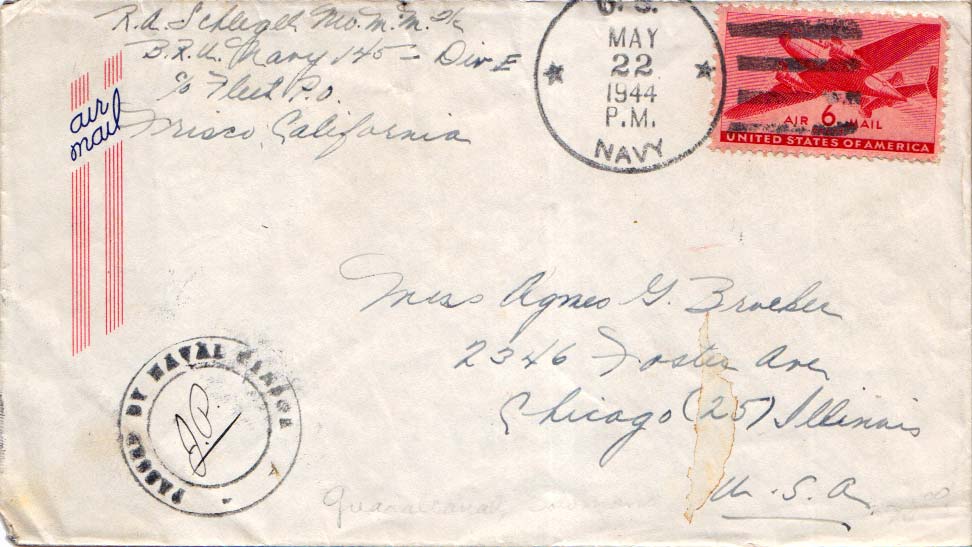 R.A. Schlegel Mo.M.M. 2/c
B.R.U. Navy 145 - Div E
c/o Fleet P.O.
Frisco, California
air
mail
U. S.
MAY
22
1944
P.M.
NAVY
AIR 6¢ MAIL
UNITED STATES OF AMERICA
Miss Agnes G. Broeker
2346 Foster Ave
Chicago (25) Illinois
U. S. A.
PASSED BY NAVAL CENSOR
J.P.
Guadalcanal